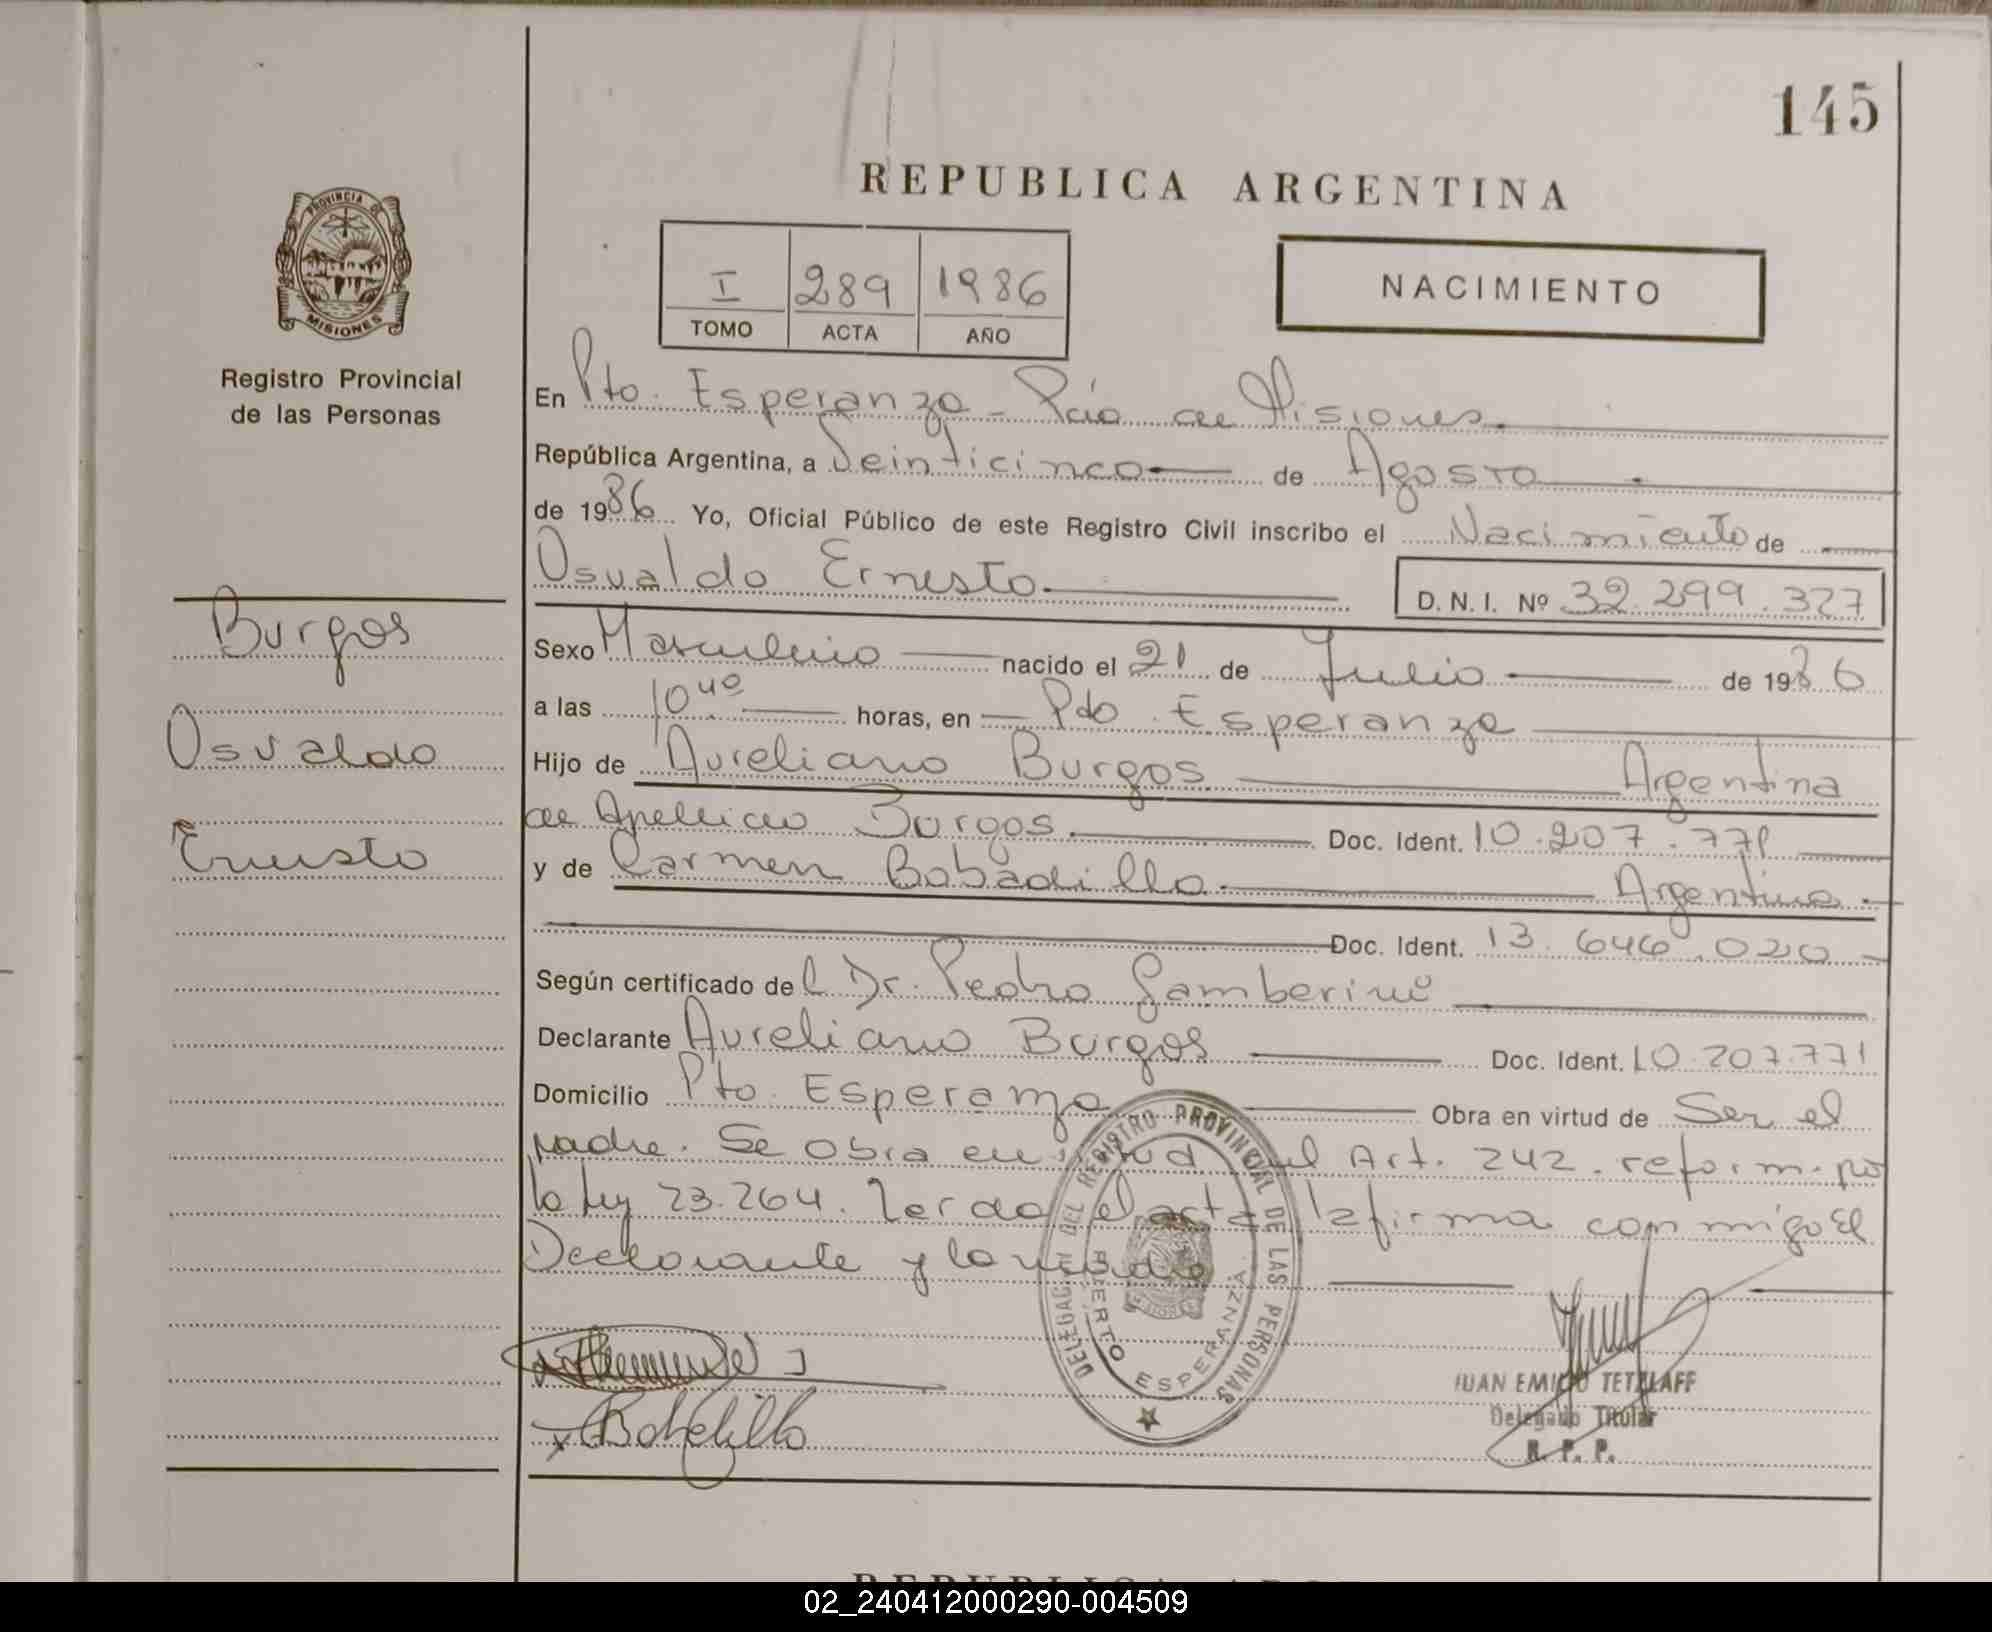 145
REPUBLICA ARGENTINA
PROVINCIA DE
MISIONES
Registro Provincial
de las Personas
I 289 1986
TOMO ACTA AÑO
NACIMIENTO
En Pto. Esperanza - Pcia de Misiones.
República Argentina, a Veinticinco de Agosto
de 1986 Yo, Oficial Público de este Registro Civil inscribo el Nacimiento de
Osvaldo Ernesto D. N. I. Nº 32.299.327
Burgos
Osvaldo
Ernesto
Sexo Masculino nacido el 21 de Julio de 1986
a las 10 40 horas, en Pto. Esperanza
Hijo de Aureliano Burgos Argentina
de Apellido Burgos. Doc. Ident. 10.207.771
y de Carmen Bobadilla Argentina
Doc. Ident. 13.646.020
Según certificado del Dr. Pedro Gamberini
Declarante Aureliano Burgos Doc. Ident. 10.207.771
Domicilio Pto. Esperanza Obra en virtud de Ser el
padre. Se obra en virtud del Art. 242. reform. por
la ley 23.264. Leida el acta la firma conmigo El
Declarante y la madre
DELEGACION DEL REGISTRO PROVINCIAL DE LAS PERSONAS
PUERTO ESPERANZA
Bobadilla
JUAN EMILIO TETZLAFF
Delegado Titular
R. P. P.
02_240412000290-004509